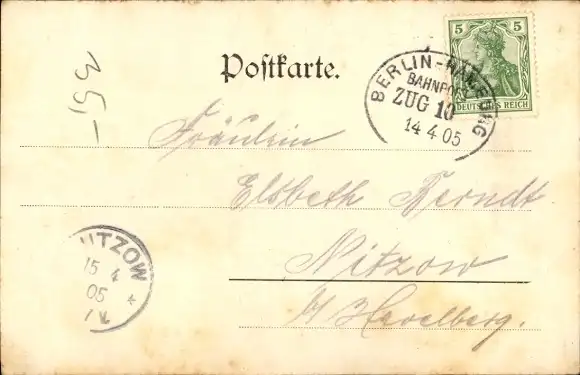 5 5
DEUTSCHES REICH
Postkarte.
BERLIN-HAMBURG
BAHNPOST
ZUG 10
14 4 05
35,-
Fräulein
Elsbeth Berndt
Nitzow
b/ Havelberg.
NITZOW
15 4
05